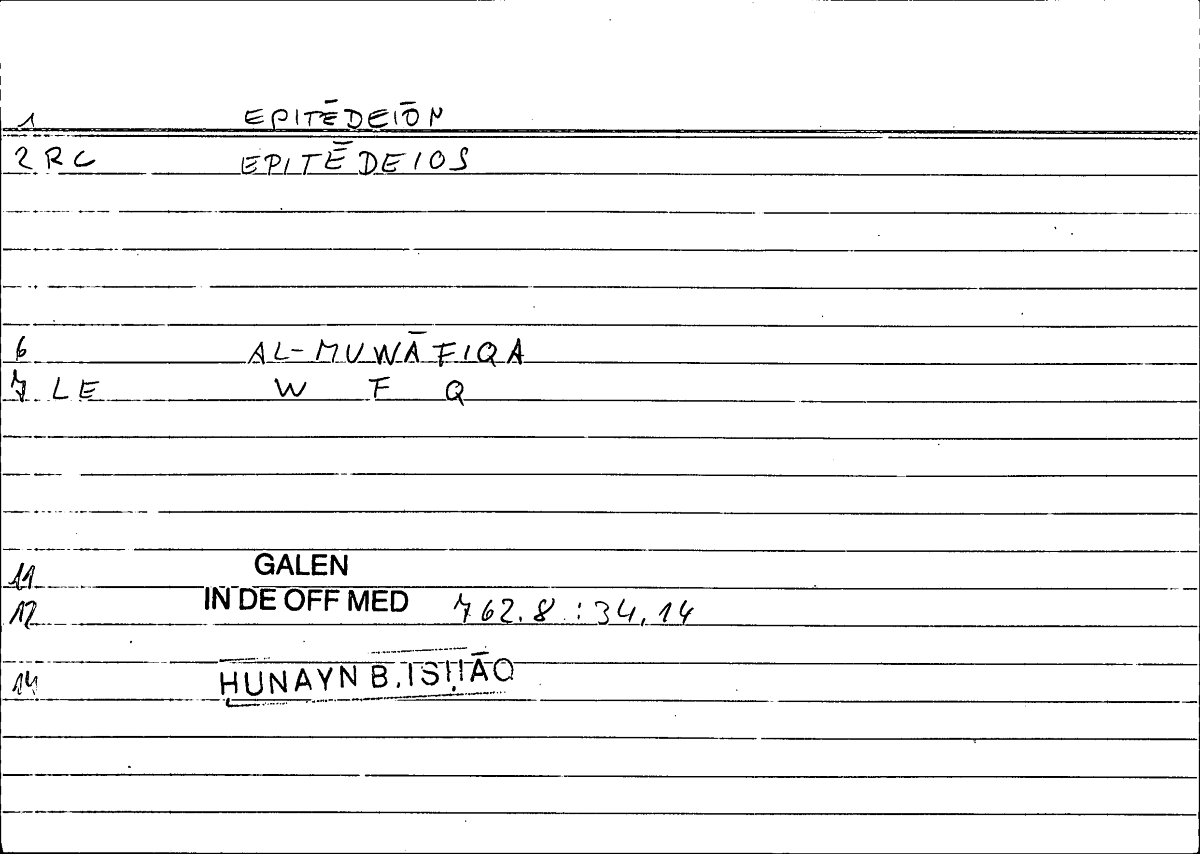 1 EPITĒDEIŌN
2 RC EPITĒDEIOS
6 AL-MUWĀFIQA
7 LE W F Q
11 GALEN
12 IN DE OFF MED 762.8 : 34,14
14 HUNAYN B. ISḤĀQ